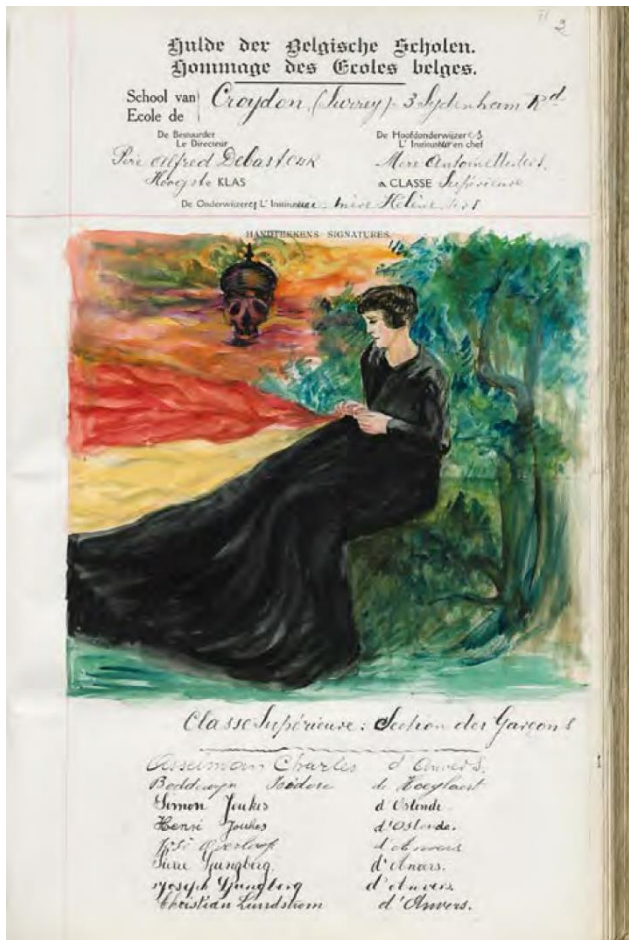 2
Hulde der Belgische Scholen.
Hommage des Ecoles belges.
School van
Ecole de
Croydon, (Surrey) - 3 Sydenham Rd.
De Bestuurder
Le Directeur
De Hoofdonderwijzer
L' Instituteur en chef
Père Alfred
Mère Antoinette
Hoogste KLAS
CLASSE Supérieure
De Onderwijzer L' Mère Hélène
HANDTEEKENS SIGNATURES.
Classe Supérieure: Section des Garçons
Asselman Charles d'Anvers.
Isidore de Hoeylaert
Simon Joukes d'Ostende.
Henri Joukes d'Ostende.
José Overloop d'Anvers
Pierre Ljungberg. d'Anvers.
Joseph Ljungberg d'Anvers.
Christian Lundström d'Anvers.